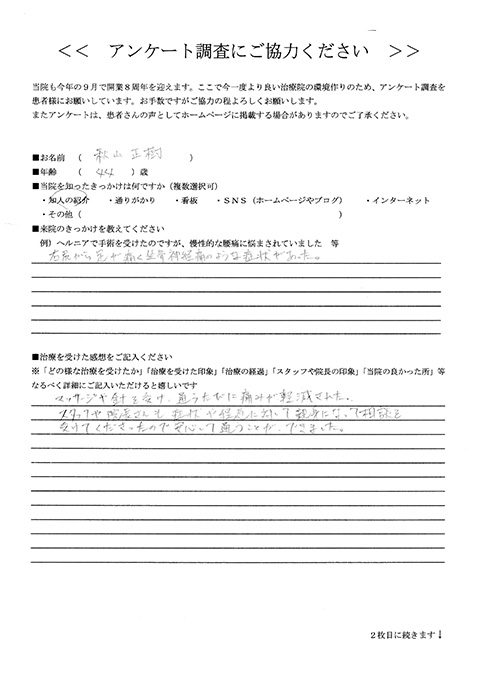 << アンケート調査にご協力ください >>
当院も今年の９月で開業８周年を迎えます。ここで今一度より良い治療院の環境作りのため、アンケート調査を
患者様にお願いしています。お手数ですがご協力の程よろしくお願いします。
またアンケートは、患者さんの声としてホームページに掲載する場合がありますのでご了承ください。
■お名前 （ 秋山 正樹 ）
■年齢 （ 44 ）歳
■当院を知ったきっかけは何ですか（複数選択可）
・知人の紹介 ・通りがかり ・看板 ・ＳＮＳ（ホームページやブログ） ・インターネット
・その他（ ）
■来院のきっかけを教えてください
例）ヘルニアで手術を受けたのですが、慢性的な腰痛に悩まされていました 等
右尻から足が痛く坐骨神経痛のような症状があった。
■治療を受けた感想をご記入ください
※「どの様な治療を受けたか」「治療を受けた印象」「治療の経過」「スタッフや院長の印象」「当院の良かった所」等
なるべく詳細にご記入いただけると嬉しいです
マッサージや針を受け、通うたびに痛みが軽減された。
スタッフや院長さんも症状や経過に対して親身になって相談を
受けてくださったので安心して通うことができました。
２枚目に続きます↓